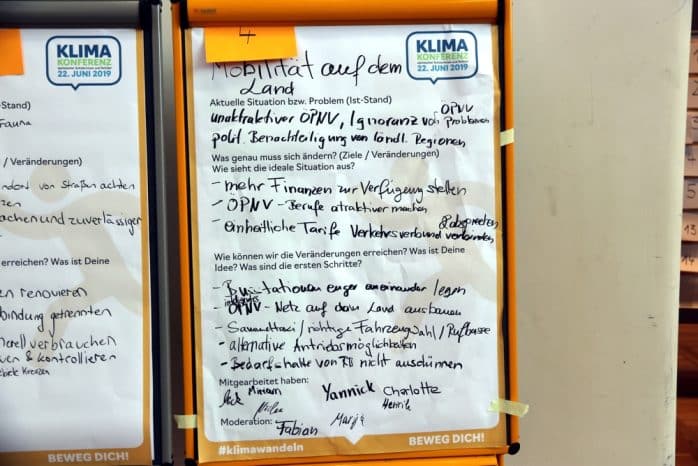 Stand)
Fauna
/ Veränderungen)
von Straßen achten
zen
achen und zuverlässiger
erreichen? Was ist Deine
en renovieren
bindung getrennten
verbrauchen
en & kontrollieren
BEWEG DICH!
KLIMA
KONFERENZ
22. JUNI 2019
4
KLIMA
KONFERENZ
22. JUNI 2019
Mobilität auf dem
Land
Aktuelle Situation bzw. Problem (Ist-Stand)
ÖPNV
unattraktiver ÖPNV, Ignoranz von Problemen
polit. Benachteiligung von ländl. Regionen
Was genau muss sich ändern? (Ziele / Veränderungen)
Wie sieht die ideale Situation aus?
- mehr Finanzen zur Verfügung stellen
- ÖPNV - Berufe atraktiver machen
- einheitliche Tarife Verkehrsverbund
Wie können wir die Veränderungen erreichen? Was ist Deine
Idee? Was sind die ersten Schritte?
- enger aneinander legen
- ÖPNV - Netz auf dem Land ausbauen
- Sammeltaxi / richtige Fahrzeugwahl / Rufbusse
- alternative Antriebsmöglichkeiten
- Bedarfshalte von nicht
Mitgearbeitet haben:
Miriam Yannick Charlotte
Henrik
Moderation: Fabian
#klimawandeln
BEWEG DICH!